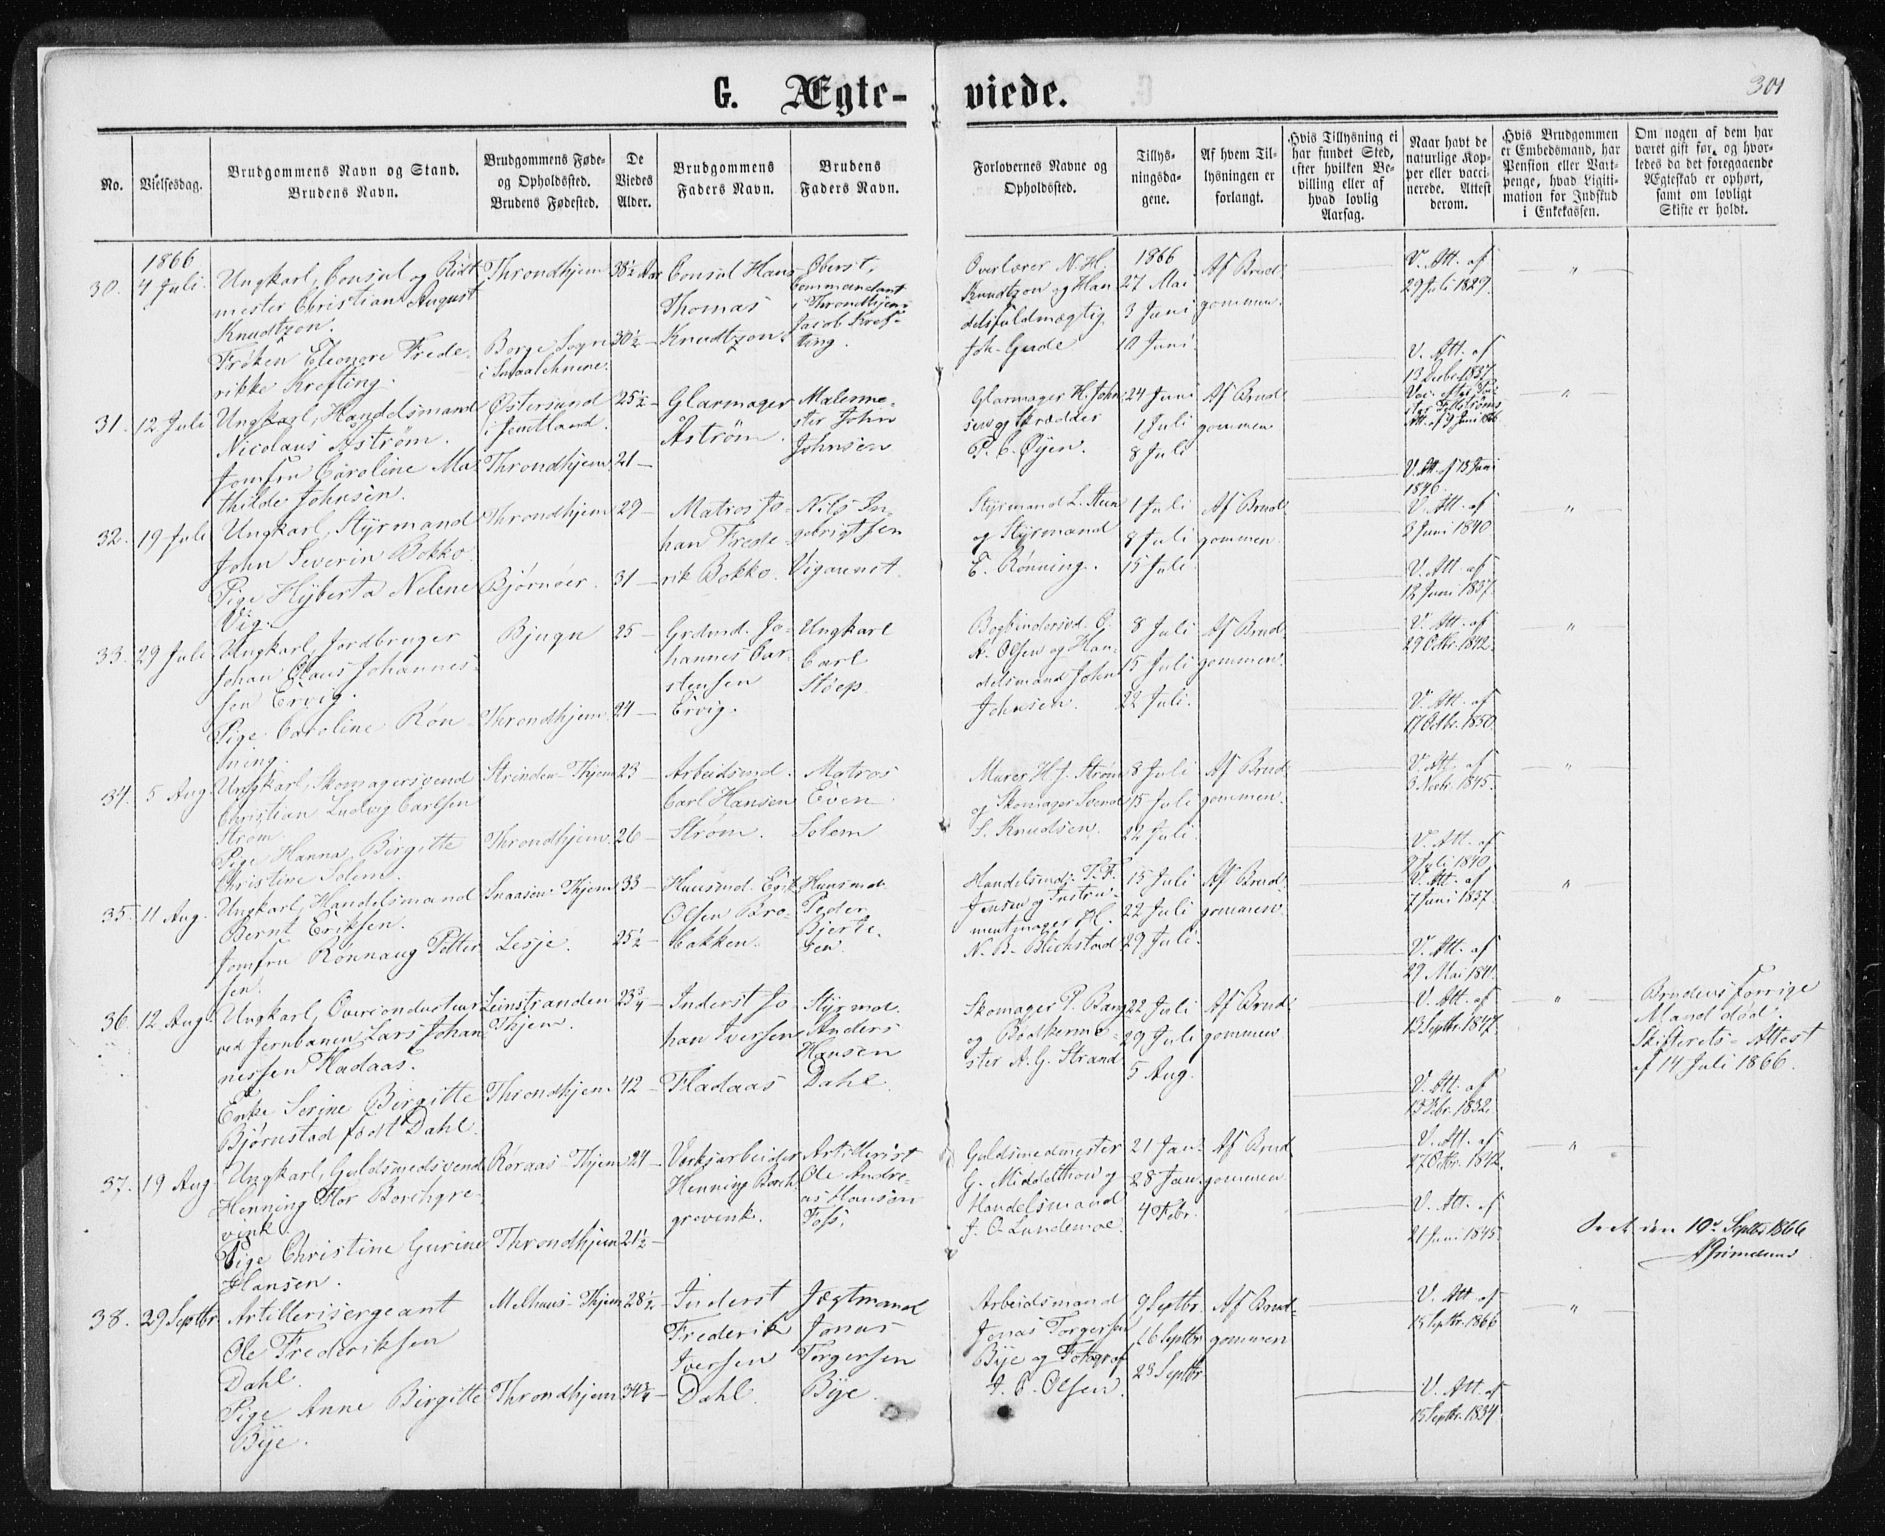 G. Ægte-
viede.
301
No.
Vielsesdag.
Brudgommens Navn og Stand.
Brudens Navn.
Brudgommens Føde-
og Opholdssted.
Brudens Fødested.
De
Viedes
Alder.
Brudgommens
Faders Navn.
Brudens
Faders Navn.
Forlovernes Navne og
Opholdssted.
Tillys-
ningsda-
gene.
Af hvem Til-
lysningen er
forlangt.
Hvis Tillysning ei
har fundet Sted,
efter hvilken Be-
villing eller af
hvad lovlig
Aarsag.
Naar havt de
naturlige Kop-
per eller vacci-
nerede. Attest
derom.
Hvis Brudgommen
er Embedsmand, har
Pension eller Vart-
penge, hvad Legiti-
mation for Indskud
i Enkekassen.
Om nogen af dem har
været gift før, og hvor-
ledes da det foregaaende
Ægteskab er ophørt,
samt om lovligt
Skifte er holdt.
1866
30.
4 Juli.
Ungkarl, Consul og Ridt-
mester Christian August
Knudtzon.
Frøken Eleonore Frede-
rikke Krefting.
Throndhjem
Borge Sogn
i Smaalehnene.
38½ Aar
30½ —
Consul Hans
Thomas
Knudtzon.
Oberst,
Commandant
i Throndhjem
Jacob Kref-
ting.
Overlærer N. H.
Knudtzon og Han
delsfuldmægtig
Joh. Gude
1866
27 Mai
3 Juni
10 Juni.
Af Brud-
gommen.
V. Att. af
29 Juli 1829.
V. Att. af
13 Decbr. 1837.
"
31.
12 Juli
Ungkarl, Handelsmand
Nicolaus Åstrøm.
Jomfru Caroline Ma-
thilde Johnsen.
Østersund
i Jemtland.
Throndhjem
25½ —
21 —
Glarmager
Åstrøm.
Malerme-
ster John
Johnsen
Glarmager H. John
sen og Skrædder
P. C. Øyen.
24 Juni
1 Juli
8 Juli
Af Brud-
gommen
Att. af 9 Juni 1866
V. Att. af 13 Juni
1846.
"
32.
19 Juli
Ungkarl, Styrmand
John Severin Bokko.
Pige Hyberta Nelene
Vig.
Throndhjem
Bjørnøer.
29 —
31 —
Matros Jo-
han Frede-
rik Bokko.
Nils In-
gebrigtsen
Vigarnst.
Styrmand L. Steen
og Styrmand
E. Rønning.
1 Juli
8 Juli
15 Juli.
Af Brud-
gommen
V. Att. af
3 Juni 1840
V. Att. af
12 Juni 1837.
"
33.
29 Juli
Ungkarl, Jordbruger
Johan Claus Johannes-
sen Ervig.
Pige Caroline Røn-
ning.
Bjugn
Throndhjem
25 —
24 —
Grdmd. Jo-
hannes Car-
stensen
Ervig.
Ungkarl
Carl
Støep.
Bogbindersvd. O.
A. Olsen og Han-
delsmand John
Johnsen.
8 Juli
15 Juli
22 Juli.
Af Brud-
gommen.
V. Att. af
29 Octbr. 1842.
V. Att. af
17 Octbr. 1850
"
34.
5 Aug.
Ungkarl, Skomagersvend
Christian Ludvig Carlsen
Strøm.
Pige Hanna Birgitte
Christine Solem.
Strinden - Thjem
Throndhjem.
23 —
26 —
Arbeidsmd.
Carl Hansen
Strøm.
Matros
Even
Solem
Murer H. J. Strøm
og Skomager Svend
S. Knudsen.
8 Juli
15 Juli
22 Juli.
Af Brud-
gommen.
V. Att. af
3 Novbr. 1845.
V. Att. af
2 Juli 1840.
"
35.
11 Aug.
Ungkarl, Handelsmand
Bernt Eriksen.
Jomfru Rønnaug Petter-
sen.
Snaasen - Thjem
Lesje.
33 —
25½ —
Huusmd. Erik
Olsen Bro-
bakken.
Huusmd.
Peder
Handelsmd. T. F.
Jensen og Instru-
mentmager H.
N. B. Blichstad
15 Juli
22 Juli
29 Juli.
Af Brud-
gommen
V. Att. af
2 Juni 1837
V. Att. af
29 Mai 1841.
"
36.
12 Aug.
Ungkarl, Overconducteur
ved Jernbanen Lars Johan
nessen Fladaas.
Enke Serine Birgitte
Bjørnstad født Dahl.
Leinstranden
Thjem.
Throndhjem
23¾ —
42 —
Inderst Jo
han Iversen
Fladaas
Styrmd.
Anders
Hansen
Dahl
Skomager P. Bang
og Bødkerme-
ster A. G. Strand
22 Juli
29 Juli
5 Aug.
Af Brud-
gommen
V. Att. af
13 Septbr. 1847.
V. Att. af
1832.
"
Brudens forrige
Mand død.
Skifterets-Attest
af 14 Juli 1866.
37.
19 Aug.
Ungkarl, Guldsmedsvend
Henning Stor Borchgre-
vink.
Pige Christine Gurine
Hansen.
Røraas - Thjem
Throndhjem
24 —
21½ —
Værksarbeider
Henning Borch
grevink.
Artillerist
Ole Andre-
as Hansen
Foss.
Guldsmedmester
G. Middelthon og
Handelsmand
J. O. Lundemoe.
21 Jan.
28 Jan.
4 Febr.
Af Brud-
gommen
V. Att. af
27 Octbr. 1842.
V. Att. af
21 Juni 1845.
"
Seet den 10de Septbr 1866
38.
29 Septbr.
Artillerisergeant
Ole Frederiksen
Dahl.
Pige Anne Birgitte
Bye.
Melhuus - Thjem
Throndhjem
28½ —
34¾ —
Inderst
Frederik
Iversen
Dahl
Jægtmand
Jonas
Torgersen
Bye.
Arbeidsmand
Jonas Torgersen
Bye og Fotograf
J. O. Olsen.
9 Septbr.
16 Septbr.
23 Septbr.
Af Brud-
gommen
V. Att. af
13 Septbr. 1866
V. Att. af
15 Septbr. 1834.
"